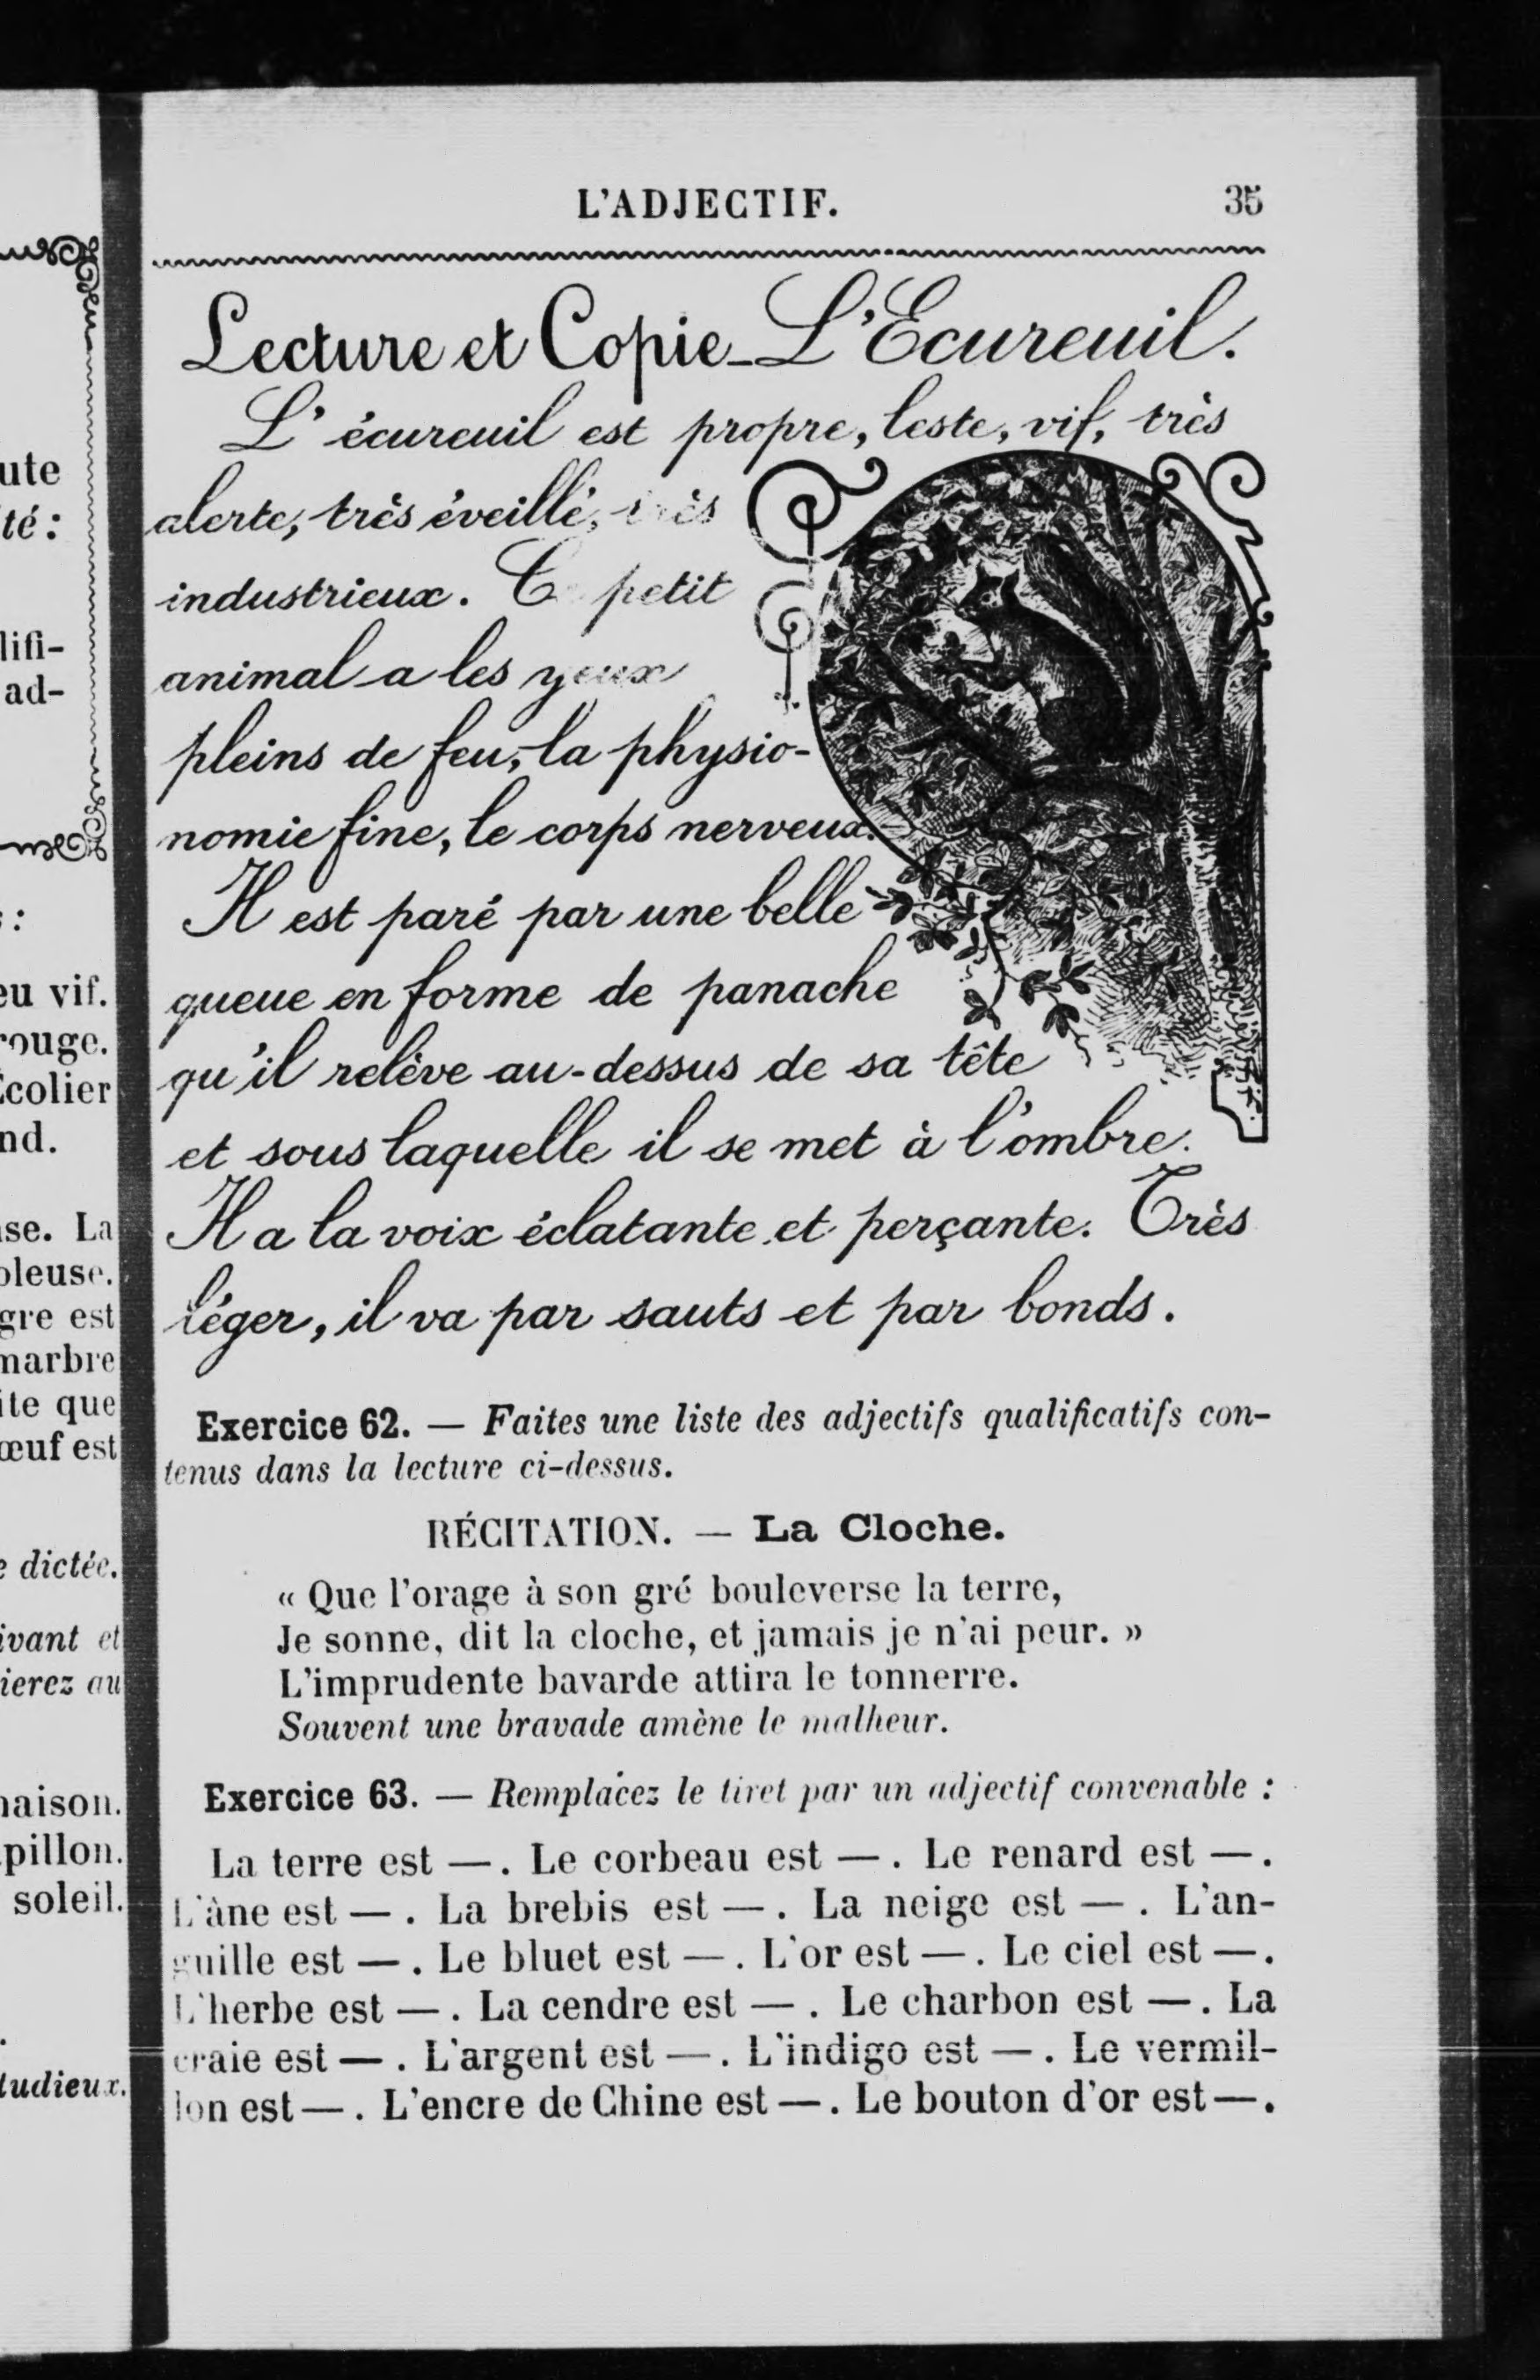 L'ADJECTIF. 35
Lecture et Copie_L'Ecureuil.
L'écureuil est propre, leste, vif, très
alerte, très éveillé, très
industrieux. Ce petit
animal a les yeux
pleins de feu, la physio-
nomie fine, le corps nerveux.
Il est paré par une belle
queue en forme de panache
qu'il relève au-dessus de sa tête
et sous laquelle il se met à l'ombre.
Il a la voix éclatante et perçante. Très
léger, il va par sauts et par bonds.
Exercice 62. — Faites une liste des adjectifs qualificatifs con-
tenus dans la lecture ci-dessus.
RÉCITATION. — La Cloche.
« Que l'orage à son gré bouleverse la terre,
Je sonne, dit la cloche, et jamais je n'ai peur. »
L'imprudente bavarde attira le tonnerre.
Souvent une bravade amène le malheur.
Exercice 63. — Remplacez le tiret par un adjectif convenable :
La terre est —. Le corbeau est —. Le renard est —.
L'âne est —. La brebis est —. La neige est —. L'an-
guille est —. Le bluet est —. L'or est —. Le ciel est —.
L'herbe est —. La cendre est —. Le charbon est —. La
craie est —. L'argent est —. L'indigo est —. Le vermil-
lon est —. L'encre de Chine est —. Le bouton d'or est —.
ute
té :
lifi-
ad-
:
eu vif.
rouge.
Écolier
nd.
se. La
oleuse.
gre est
marbre
ite que
œuf est
dictée.
ivant et
ierez au
naison.
pillon.
soleil.
tudieux.